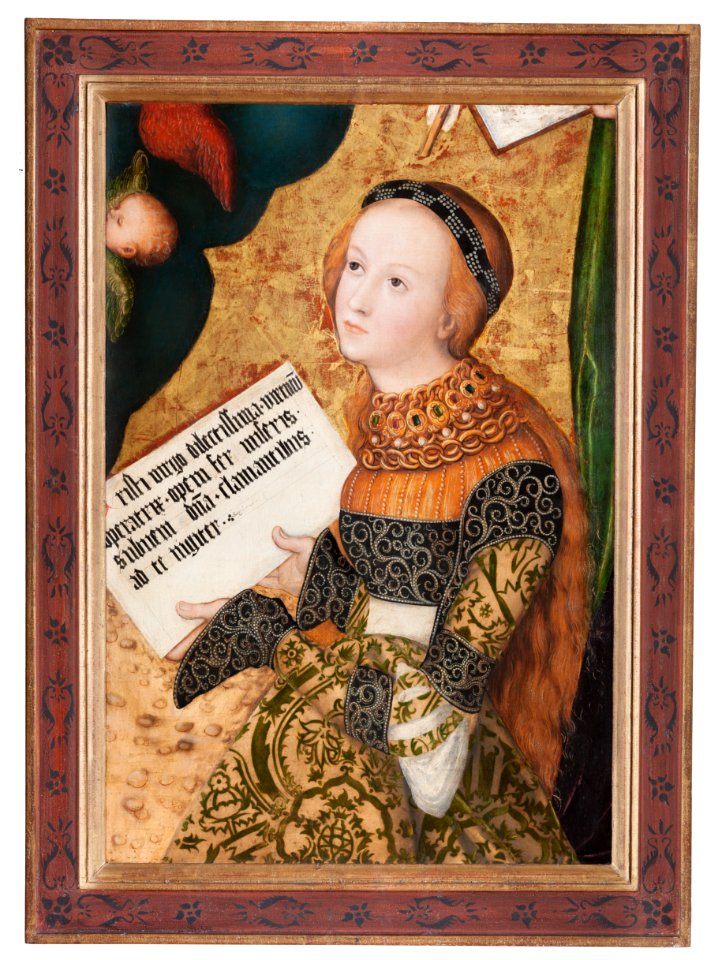 risti virgo dilectissima · virtutū
operatrix · opem fer miseris ·
subueni dn̄a · clamantibus
ad te iugiter ·